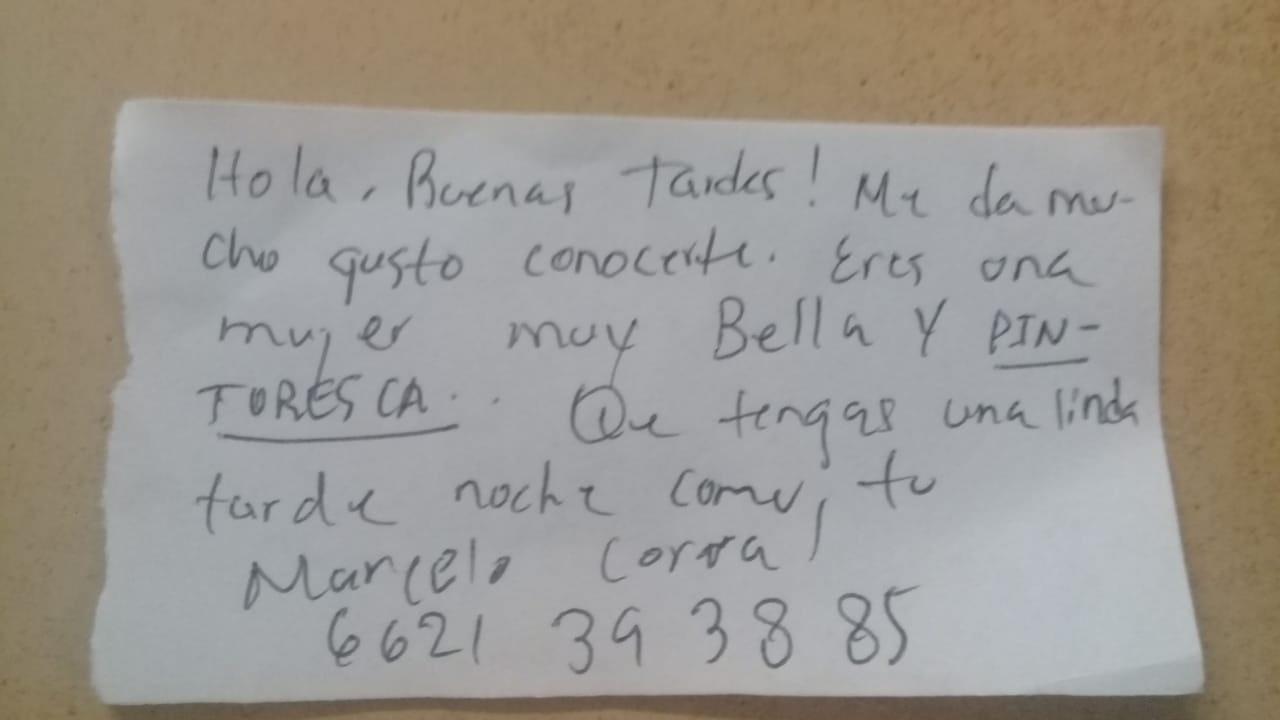 Hola, Buenas Tardes! Me da mu-
cho gusto conocerte. Eres una
mujer muy Bella y PIN-
TORESCA.. Que tengas una linda
tarde noche como, tu
Marcelo Corra!
6621 39 38 85